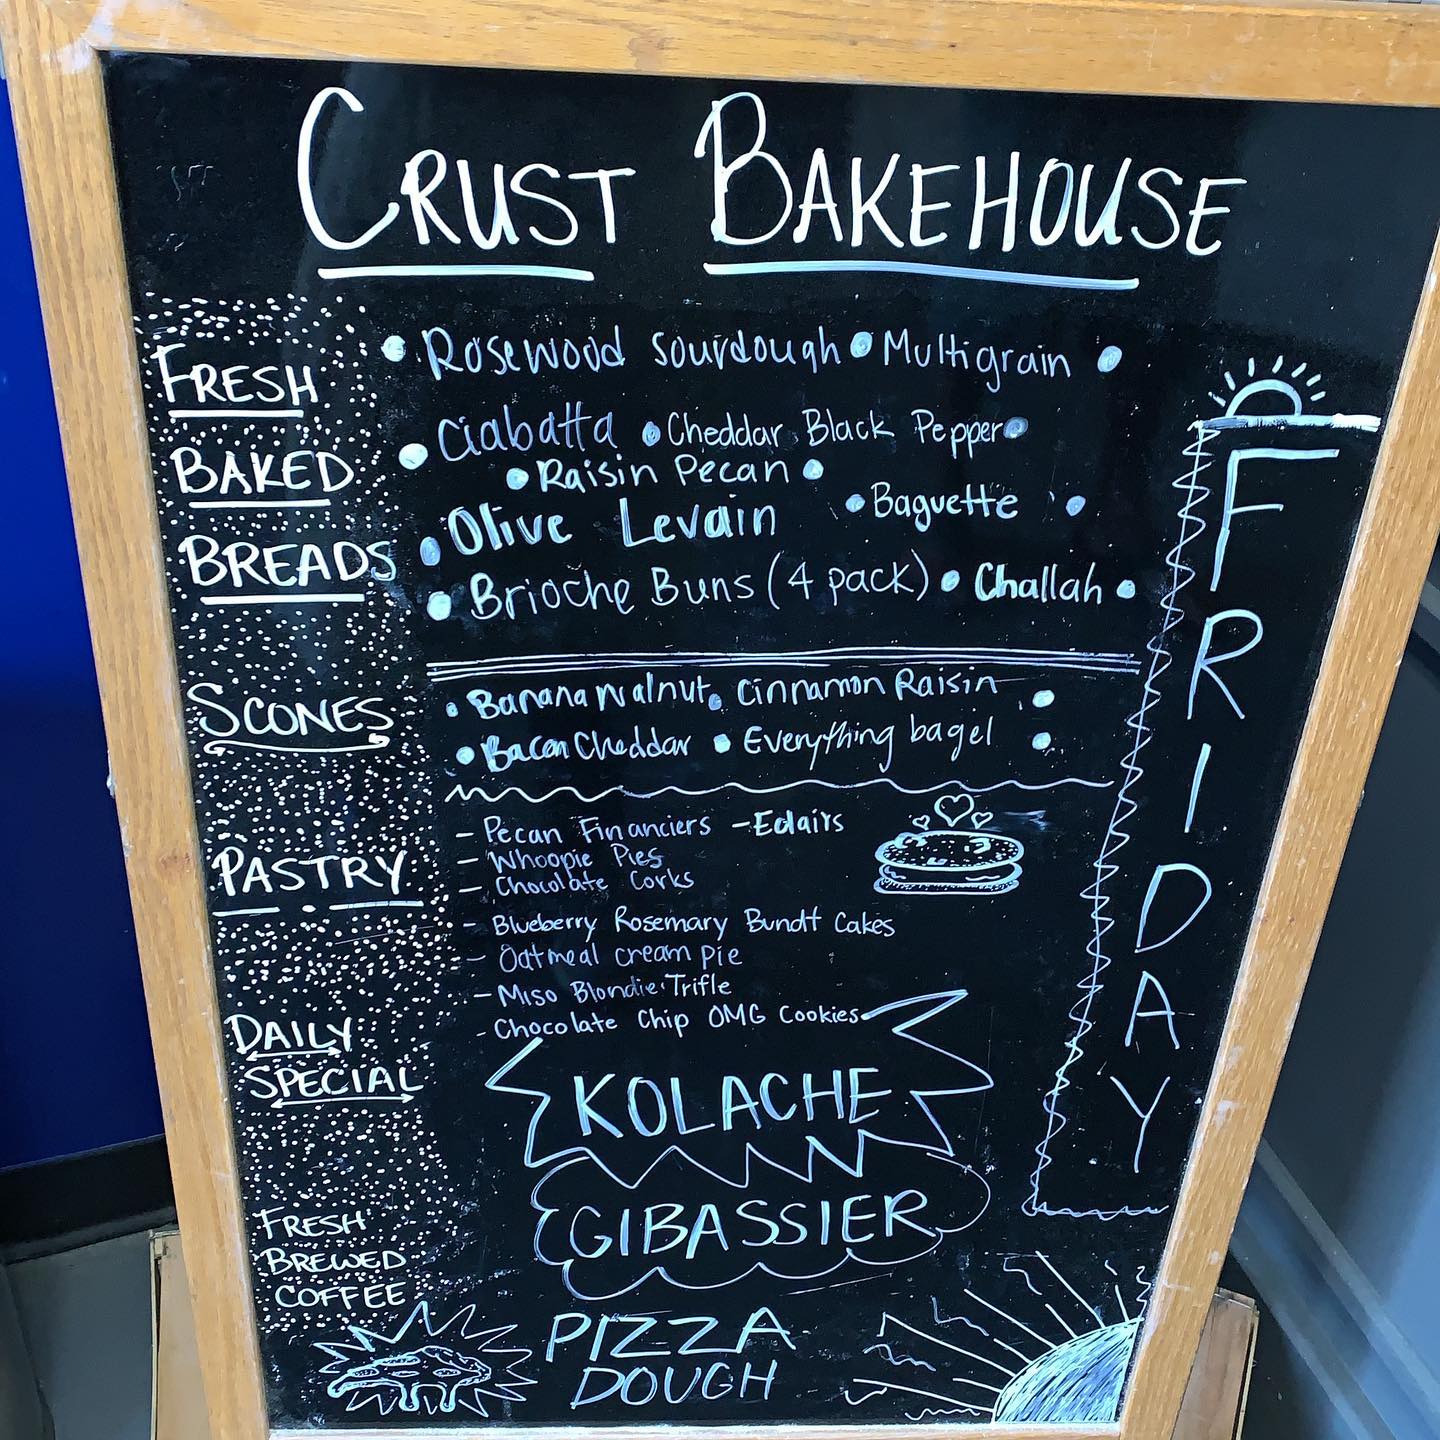 CRUST BAKEHOUSE
FRESH
BAKED
BREADS
• Rosewood Sourdough • Multigrain •
• Ciabatta • Cheddar Black Pepper •
• Raisin Pecan •
• Olive Levain • Baguette •
• Brioche Buns (4 pack) • Challah •
SCONES
• Banana Walnut • Cinnamon Raisin •
• Bacon Cheddar • Everything bagel •
PASTRY
- Pecan Financiers - Eclairs
- Whoopie Pies
- Chocolate Corks
- Blueberry Rosemary Bundt Cakes
- Oatmeal cream pie
- Miso Blondie Trifle
- Chocolate Chip OMG Cookies
DAILY
SPECIAL
KOLACHE
GIBASSIER
FRESH
BREWED
COFFEE
PIZZA
DOUGH
FRIDAY